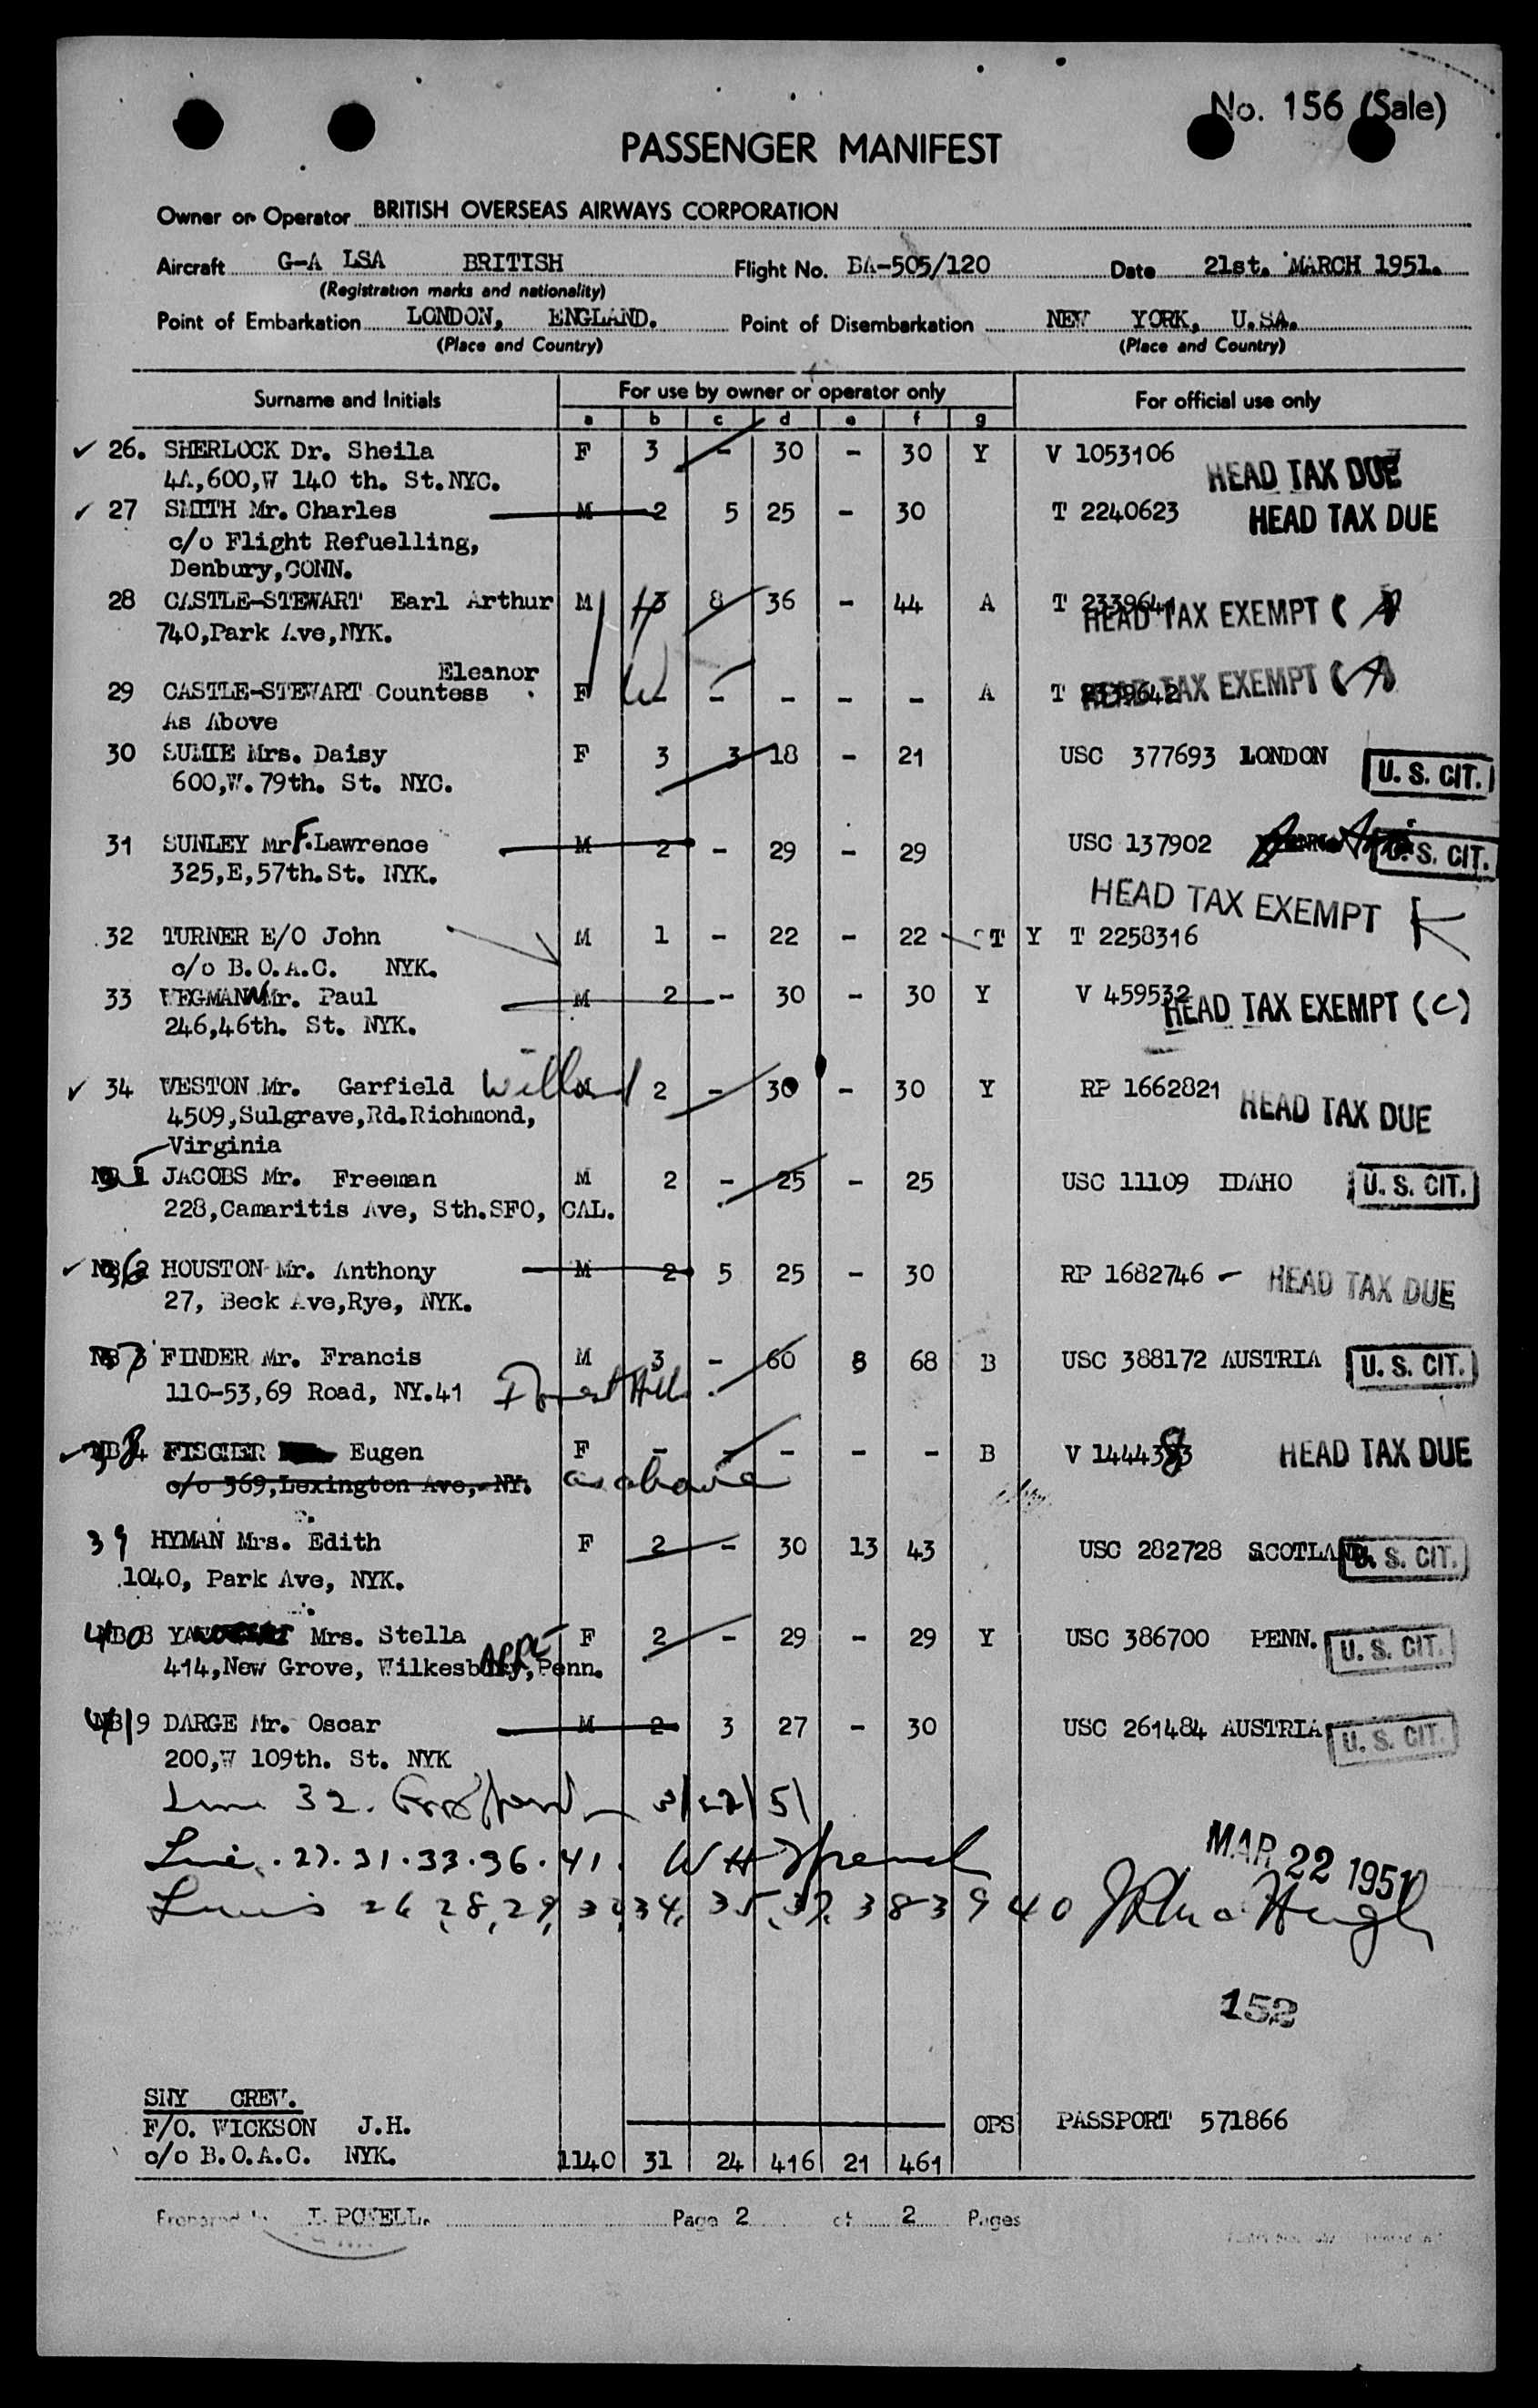 No. 156 (Sale)
PASSENGER MANIFEST
Owner or Operator BRITISH OVERSEAS AIRWAYS CORPORATION
Aircraft G-A LSA BRITISH Flight No. BA-505/120 Date 21st. MARCH 1951.
(Registration marks and nationality)
Point of Embarkation LONDON, ENGLAND. Point of Disembarkation NEW YORK, U.SA.
(Place and Country) (Place and Country)
Surname and Initials For use by owner or operator only For official use only
a b c d e f g
✓ 26. SHERLOCK Dr. Sheila F 3 - 30 - 30 Y V 1053106 HEAD TAX DUE
4A,600,W 140 th. St.NYC.
✓ 27 SMITH Mr. Charles M 2 5 25 - 30 T 2240623 HEAD TAX DUE
c/o Flight Refuelling,
Denbury,CONN.
28 CASTLE-STEWART Earl Arthur M H 3 8 36 - 44 A T 2339641 HEAD TAX EXEMPT (A)
740,Park Ave,NYK.
Eleanor
29 CASTLE-STEWART Countess F W - - - - - A T 2339642 HEAD TAX EXEMPT (A)
As Above
30 SUMIE Mrs. Daisy F 3 3 18 - 21 USC 377693 LONDON U. S. CIT.
600,W.79th. St. NYC.
31 SUNLEY Mr F. Lawrence M 2 - 29 - 29 USC 137902 U. S. CIT.
325,E,57th.St. NYK.
HEAD TAX EXEMPT K
32 TURNER E/O John M 1 - 22 - 22 T Y T 2258316
c/o B.O.A.C. NYK.
33 WEGMANN Mr. Paul M 2 - 30 - 30 Y V 459532 HEAD TAX EXEMPT (C)
246,46th. St. NYK.
✓ 34 WESTON Mr. Garfield Willard M 2 - 30 - 30 Y RP 1662821 HEAD TAX DUE
4509,Sulgrave,Rd.Richmond,
Virginia
NB 1 JACOBS Mr. Freeman M 2 - 25 - 25 USC 11109 IDAHO U. S. CIT.
228,Camaritis Ave, Sth.SFO, CAL.
✓ 36 HOUSTON Mr. Anthony M 2 5 25 - 30 RP 1682746 - HEAD TAX DUE
27, Beck Ave,Rye, NYK.
37 FINDER Mr. Francis M 3 - 60 8 68 B USC 388172 AUSTRIA U. S. CIT.
110-53,69 Road, NY.41 Forest Hills
✓ 38 FISCHER Eugen F - - - - - B V 1444383 HEAD TAX DUE
c/o 369,Lexington Ave, NY. as above
39 HYMAN Mrs. Edith F 2 - 30 13 43 USC 282728 SCOTLAND. U. S. CIT.
1040, Park Ave, NYK.
40 Mrs. Stella F 2 - 29 - 29 Y USC 386700 PENN. U. S. CIT.
414,New Grove, Penn.
41 9 DARGE Mr. Oscar M 2 3 27 - 30 USC 261484 AUSTRIA U. S. CIT.
200,W 109th. St. NYK
Line 32. 3/22/51
Line . 27. 31. 33. 36. 41.
MAR 22 1951
Lines 26, 28, 29, 30, 34, 35, 37, 38 39 40
152
SNY CREW.
F/O. WICKSON J.H. OPS PASSPORT 571866
c/o B.O.A.C. NYK. 1140 31 24 416 21 461
Prepared by L. POWELL. Page 2 of 2 Pages